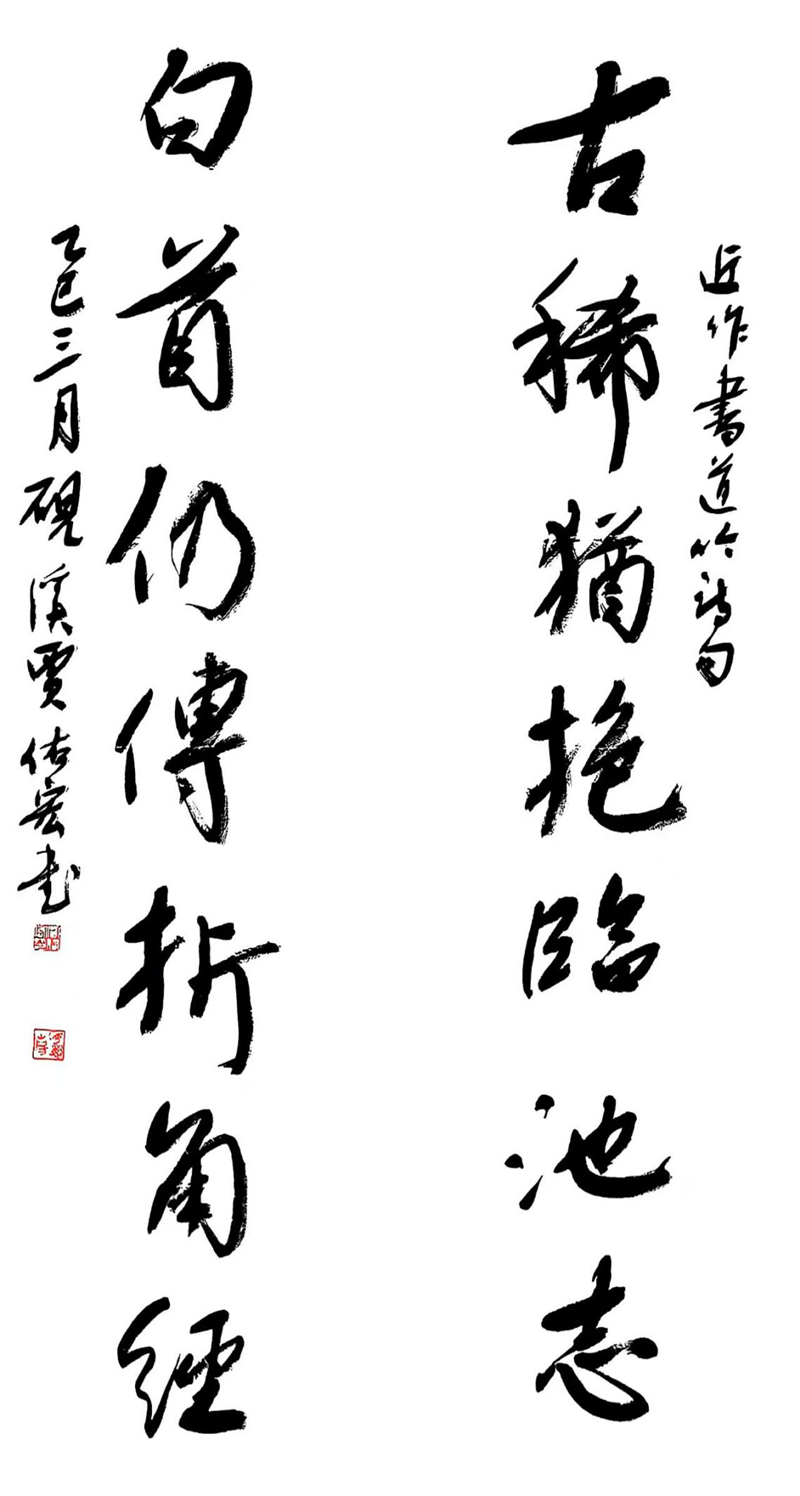 近作書道吟詩句
古稀猶抱臨池志
白首仍傳折角經
乙巳三月硯溪賈佑宏書